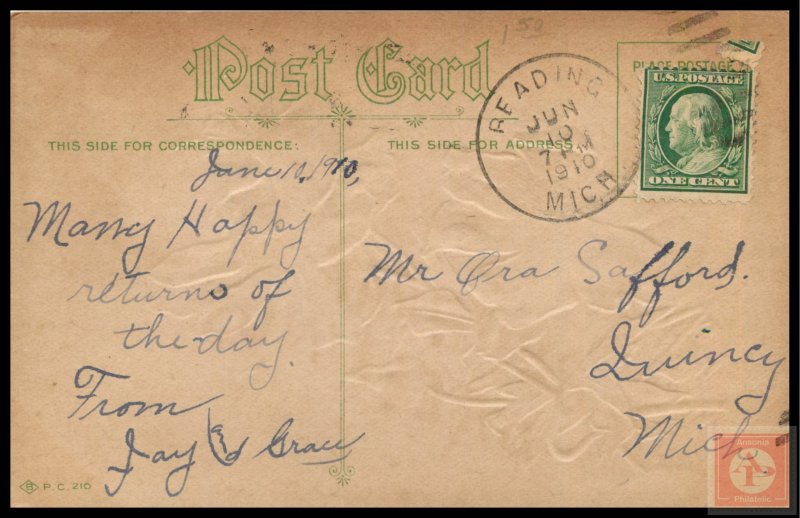 1 50
Post Card
PLACE POSTAGE
U.S. POSTAGE
ONE CENT
READING
JUN
10
7 PM
1910
MICH.
THIS SIDE FOR CORRESPONDENCE:
THIS SIDE FOR ADDRESS
June 10, 1910,
Many Happy
returns of
the day.
From
Jay & Grace
Mr Ora Safford.
Quincy
Mich.
B P.C. 210
Ansonia
AP
Philatelic